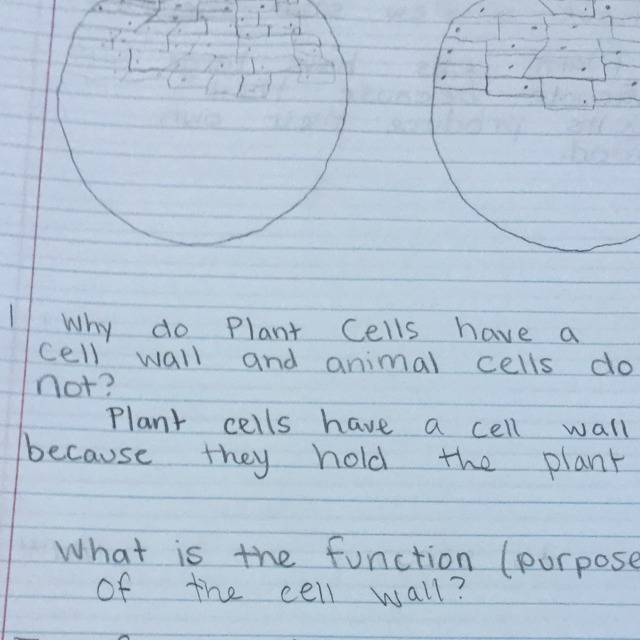 1 Why do Plant Cells have a
cell wall and animal cells do
not?
Plant cells have a cell wall
because they hold the plant
What is the function (purpose
of the cell wall?